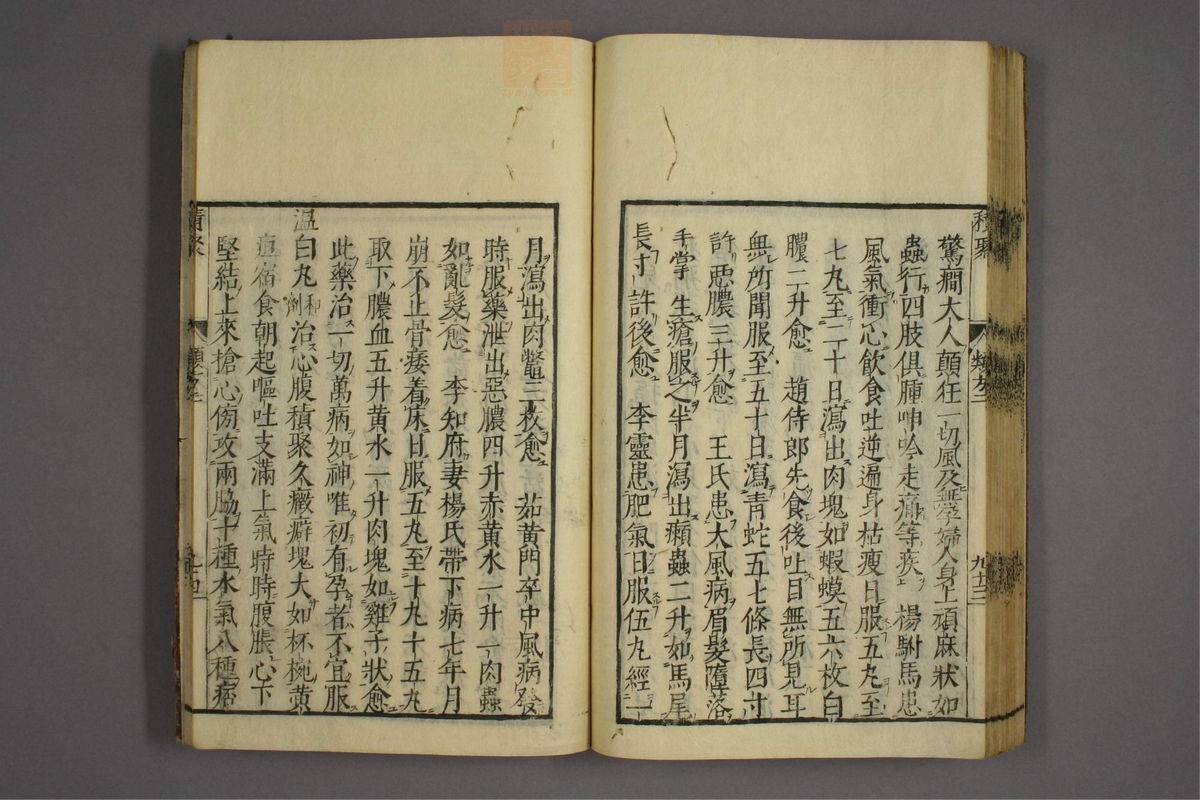 驚癎大人顛狂一切風及無孕婦人身上頑麻狀如
蟲行四肢俱腫呻吟走痛等疾 楊駙馬患
風氣衝心飲食吐逆遍身枯瘦日服五丸至
七丸至二十日瀉出肉塊如蝦蟆五六枚白
膿二升愈 趙侍郎先食後吐目無所見耳
無所聞服至五十日瀉青蛇五七條長四寸
許惡膿三升愈 王氏患大風病眉髮墮落
手掌生瘡服之半月瀉出癩蟲二升如馬尾
長寸許後愈 李靈患肥氣日服伍丸經一
月瀉出肉鱉三枚愈 茹黃門卒中風病發
時服藥泄出惡膿四升赤黃水一升一肉蟲
如亂髮愈 李知府妻楊氏帶下病七年月
崩不止骨痿着床日服五丸至十丸十五丸
取下膿血五升黃水一升肉塊如雞子狀愈
此藥治一切萬病如神唯初有孕者不宜服
温白丸 和劑 治心腹積聚久癥癖塊大如杯椀黃
疸宿食朝起嘔吐支滿上氣時時腹脹心下
堅結上來搶心傍攻兩脇十種水氣八種痞
積聚